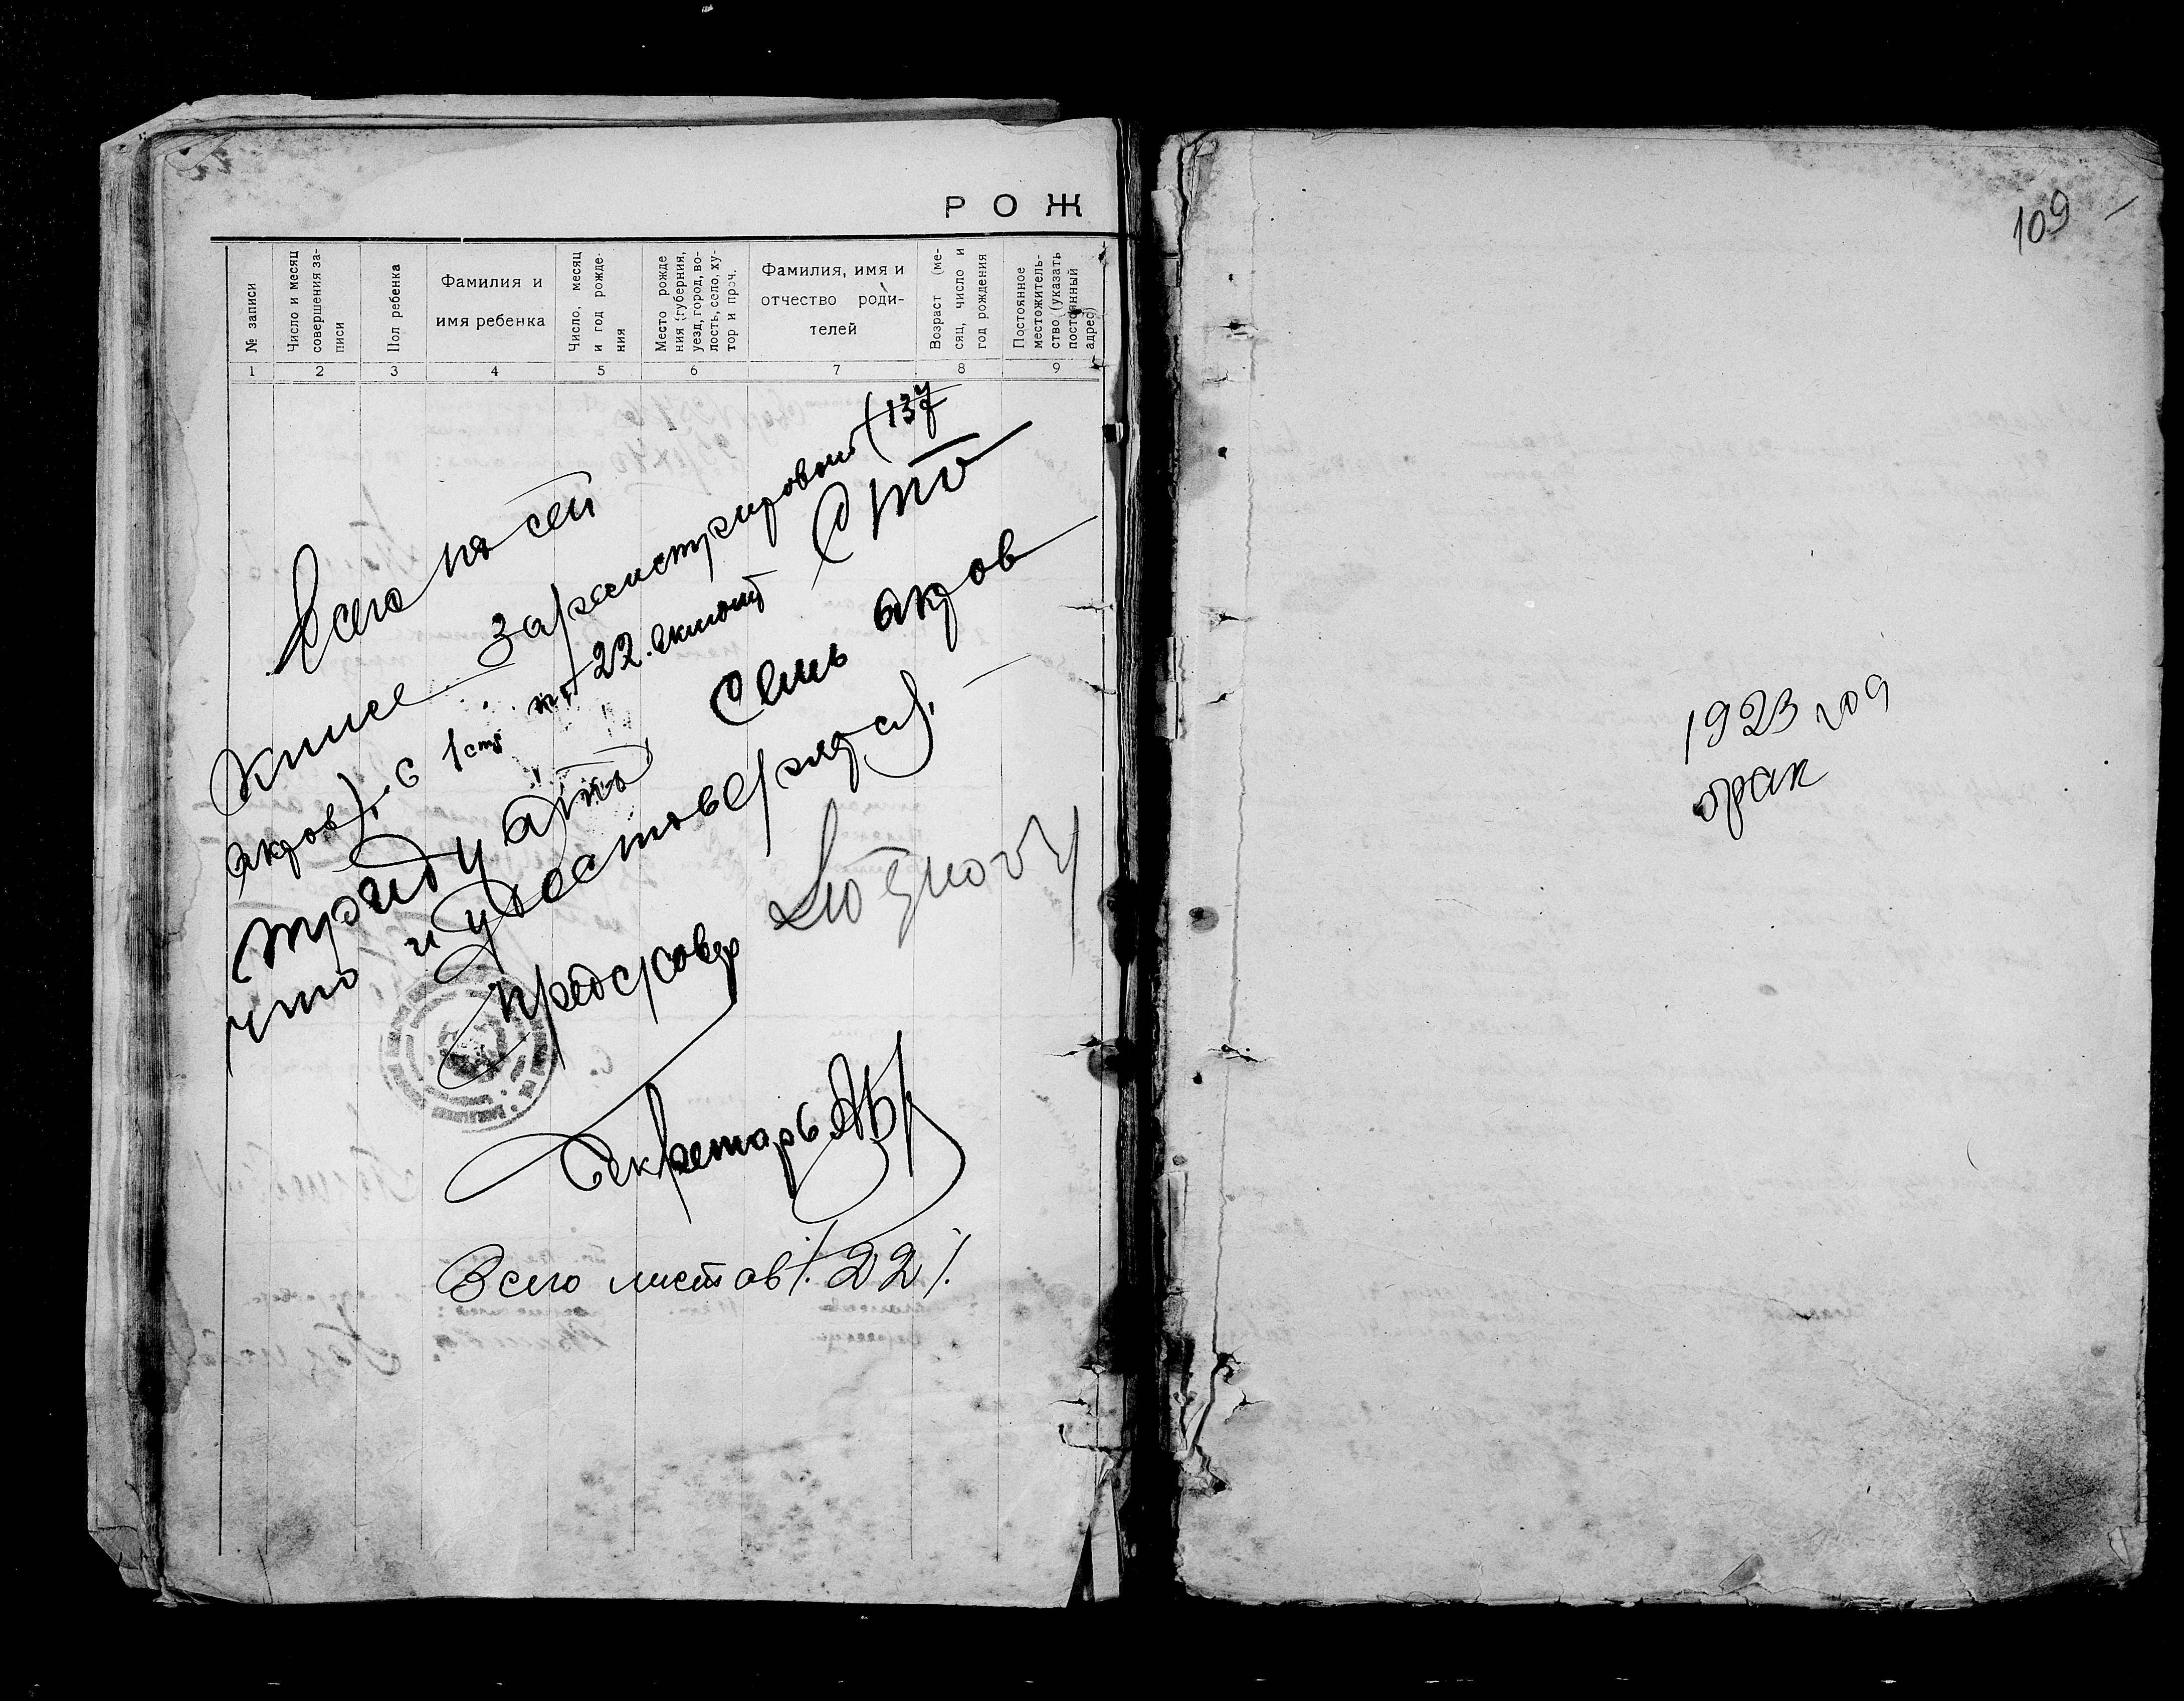 РОЖ
№ записи
Число и месяц совершения за-
писи
Пол ребенка
Фамилия и
имя ребенка
Число, месяц
и год рожде-
ния
Место рожде
ния (губерния,
уезд, город, во-
лость, село, ху-
тор и проч.
Фамилия, имя и
отчество роди-
телей
Возраст (ме-
сяц, число и
год рождения
Постоянное
местожитель-
ство (указать
постоянный
адрес)
1 2 3 4 5 6 7 8 9
Всего по сей
книге зарегистрировано (137
актов), с 1 ст по 22. Сто
тридцать семь актов
что и удостоверяется.
Предсровер
Секретарь
Всего листов /.22/.
109
1923 год
брак